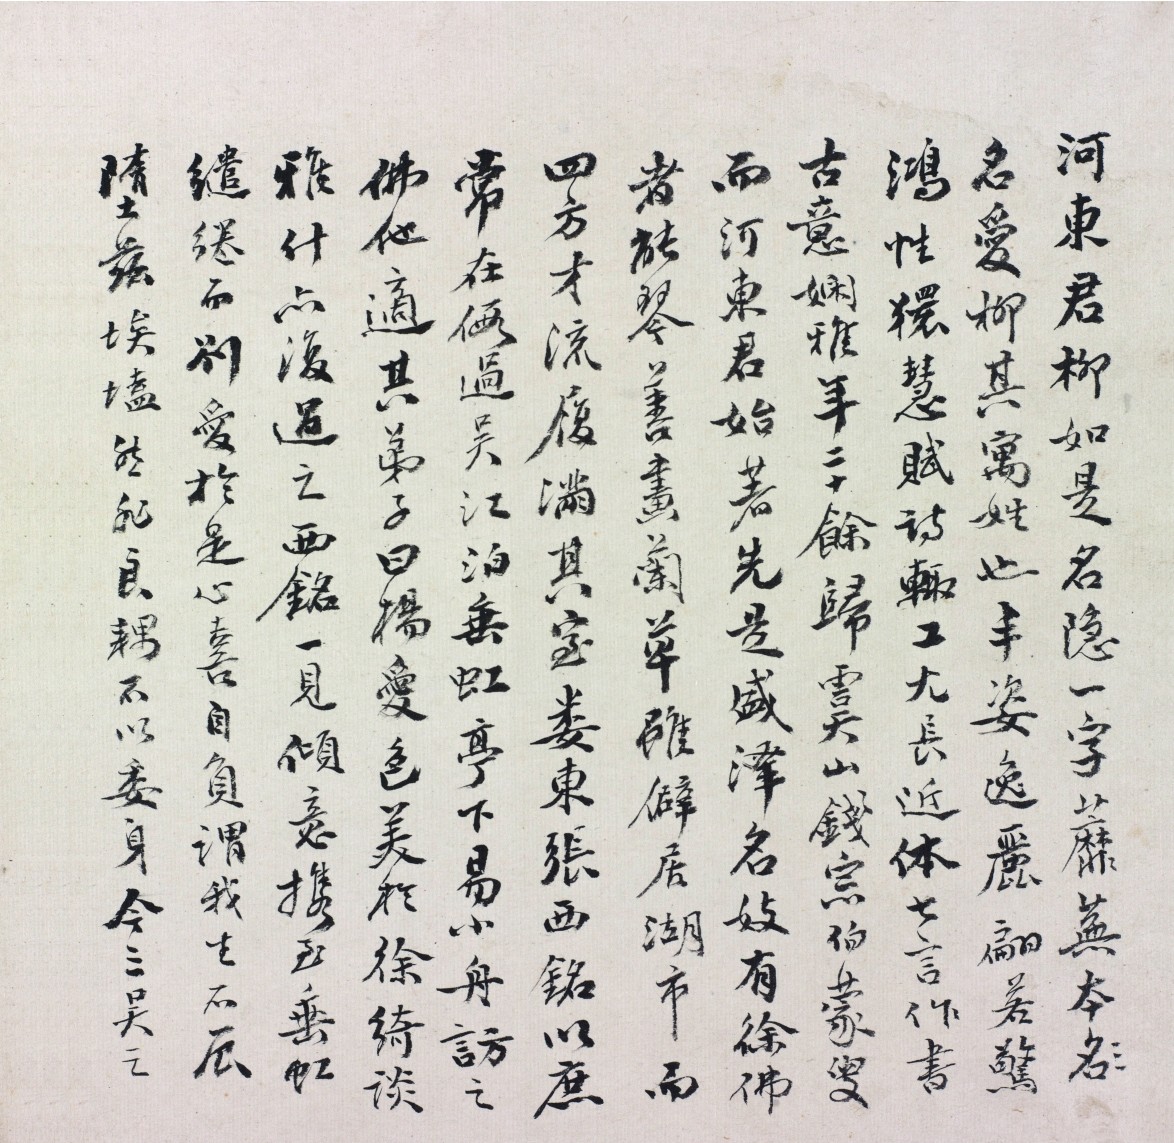 河東君柳如是名隱一字蘼蕪本名〻
名愛柳其寓姓也丰姿逸麗翩若驚
鴻性獧慧賦詩輙工尤長近体七言作書
古意嫻雅年二十餘歸雲山錢宗伯蒙叟
而河東君始著先是盛澤名妓有徐佛
者能琴善畫蘭草雖僻居湖市而
四方才流履滿其室婁東張西銘以庶
常在假過吳江泊垂虹亭下易小舟訪之
佛他適其弟子曰楊愛色美於徐綺談
雅什亦復過之西銘一見傾意携至垂虹
繾綣而別愛於是心喜自負謂我生不辰
墮茲埃壒然非良耦不以委身今三吳之